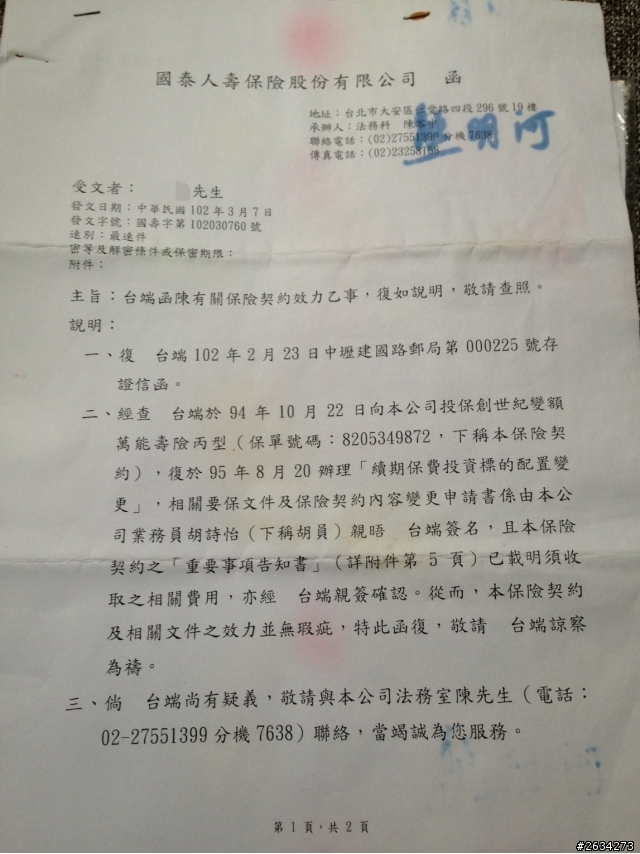 國泰人壽保險股份有限公司 函
地址：台北市大安區仁愛路四段296號19樓
承辦人：法務科 陳
聯絡電話：(02)27551399分機7638
傳真電話：(02)23258168
明河
受文者： 先生
發文日期：中華民國102年3月7日
發文字號：國壽字第102030760號
速別：最速件
密等及解密條件或保密期限：
附件：
主旨：台端函陳有關保險契約效力乙事，復如說明，敬請查照。
說明：
一、復 台端102年2月23日中壢建國路郵局第000225號存
證信函。
二、經查 台端於94年10月22日向本公司投保創世紀變額
萬能壽險丙型（保單號碼：8205349872，下稱本保險契
約），復於95年8月20辦理「續期保費投資標的配置變
更」，相關要保文件及保險契約內容變更申請書係由本公
司業務員胡詩怡（下稱胡員）親晤 台端簽名，且本保險
契約之「重要事項告知書」（詳附件第5頁）已載明須收
取之相關費用，亦經 台端親簽確認。從而，本保險契約
及相關文件之效力並無瑕疵，特此函復，敬請 台端諒察
為禱。
三、倘 台端尚有疑義，敬請與本公司法務室陳先生（電話：
02-27551399分機7638）聯絡，當竭誠為您服務。
第1頁，共2頁
#2634273